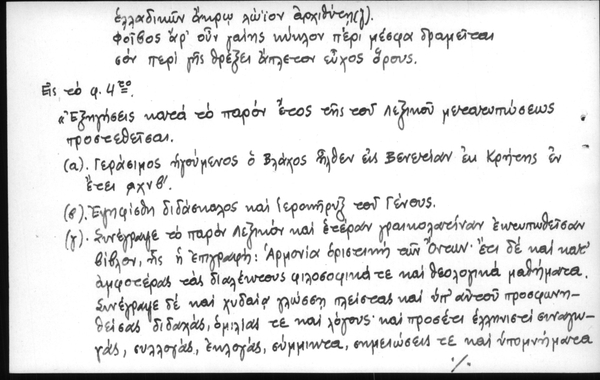 ἑλλαδικῶν ἄκρῳ λώϊον ἀρχιθύτῃ(;).
Φοῖβος ἄρ' οὖν γαίης κύκλον πέρι μέσφα δραμεῖται
σόν περὶ γῆς θρέξει ἄπλετον εὖχος ὅρους.
Εἰς τὸ φ. 4το.
«Ἐξηγήσεις κατά τὸ παρόν ἔτος τῆς τοῦ Λεξικοῦ μετατυπώσεως
προστεθεῖσαι.
(α). Γεράσιμος ἡγούμενος ὁ Βλάχος ἦλθεν εἰς Βενετίαν ἐκ Κρήτης ἐν
ἔτει αχνβ'.
(β). Ἐψηφίσθη διδάσκαλος καὶ ἱεροκῆρυξ τοῦ Γένους.
(γ). Συνέγραψε τὸ παρόν Λεξικόν καὶ ἑτέραν γραικολατείναν ἐκτυπωθεῖσαν
βίβλον, ἧς ἡ ἐπιγραφή: Ἁρμονία ὁριστική τῶν Ὄντων· ἔτι δὲ καὶ κατ'
ἀμφοτέρας τὰς διαλέκτους φιλοσοφικά τε καὶ θεολογικά μαθήματα.
Συνέγραψε δέ καὶ χυδαίᾳ γλώσσῃ πλείστας καὶ ὑπ' αὐτοῦ προσφωνη-
θείσας διδαχάς, ὁμιλίας τε καὶ λόγους· καὶ προσέτι ἑλληνιστί συναγω-
γάς, συλλογάς, ἐκλογάς, σύμμικτα, σημειώσεις τε καὶ ὑπομνήματα
./.